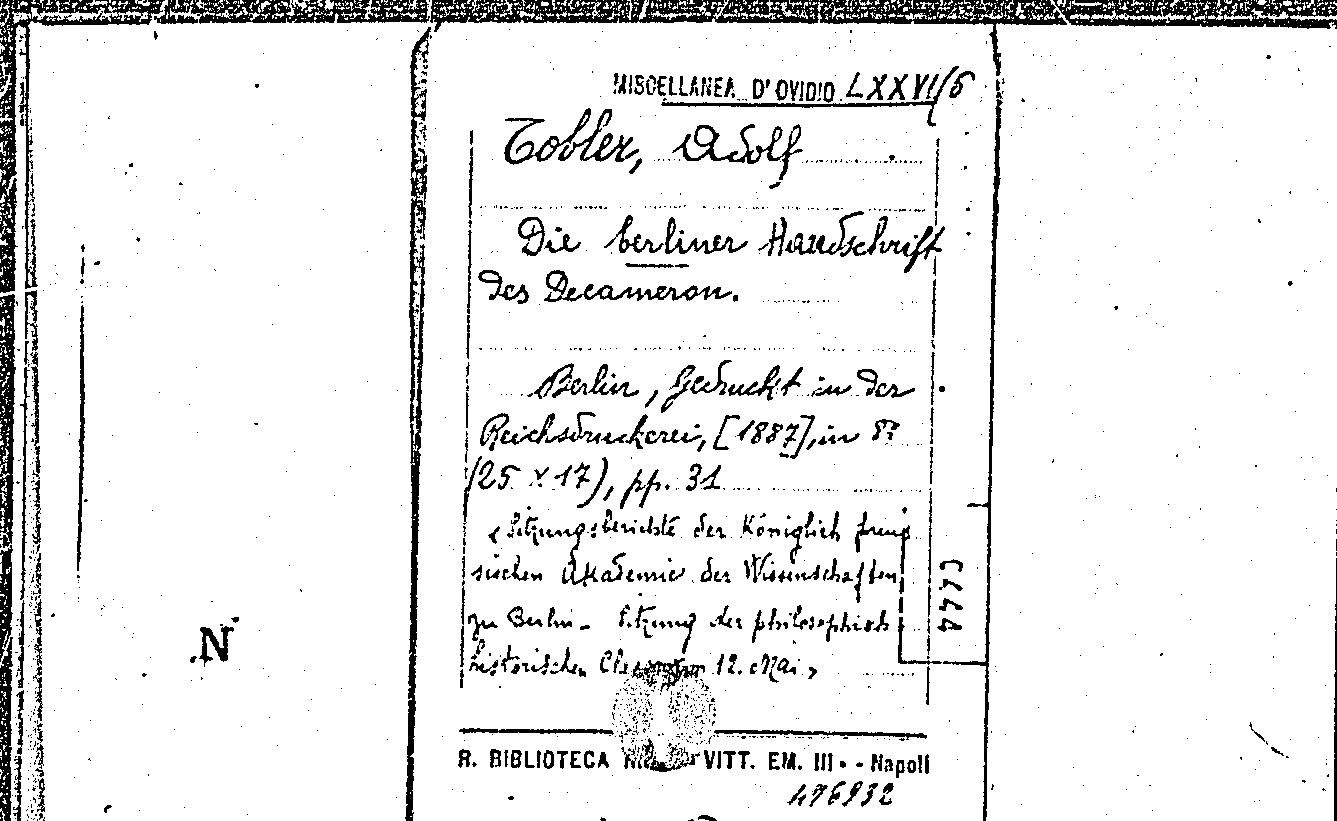 MISCELLANEA D'OVIDIO LXXVI/5
Tobler, Adolf
Die berliner Handschrift
des Decameron.
Berlin, Gedruckt in der
Reichsdruckerei, [1887], in 8°
(25 x 17), pp. 31
« Sitzungsberichte der Königlich preus
sischen Akademie der Wissenschaften
zu Berlin - Sitzung der philosophisch-
historischen Classe vom 12. Mai »
R. BIBLIOTECA VITT. EM. III - Napoli
476932
N